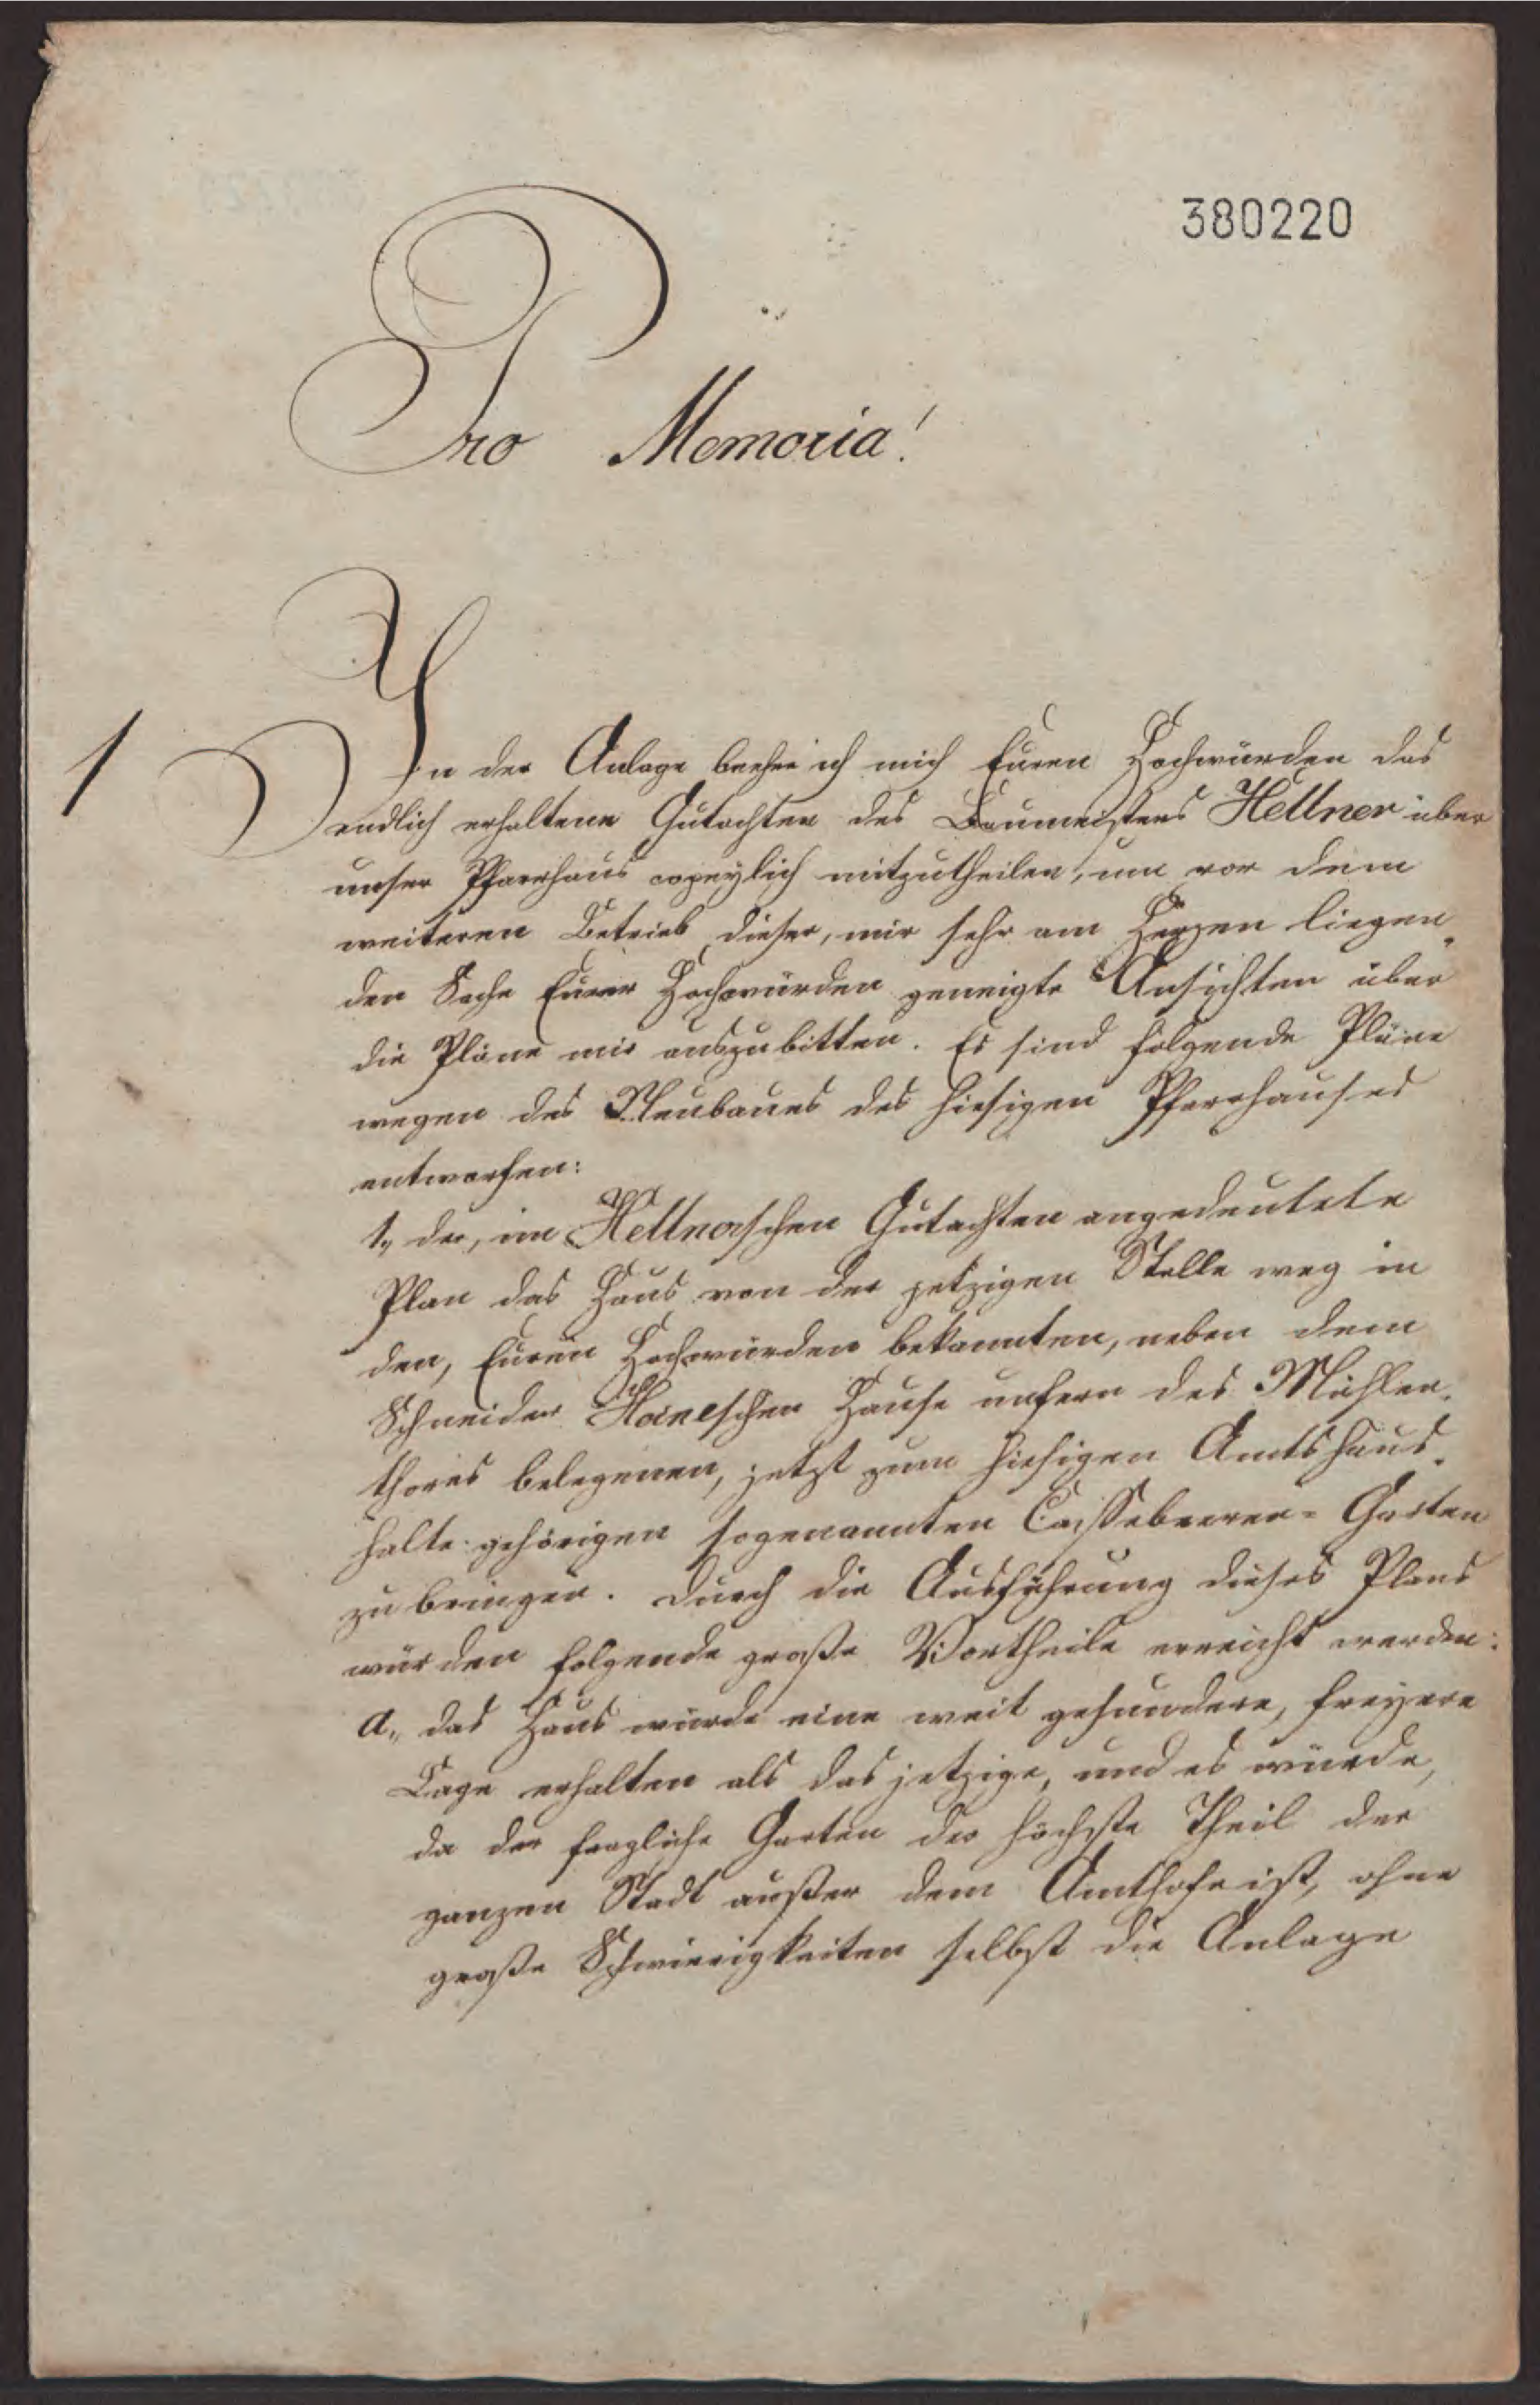 380220
Pro Memoria!
1
In der Anlage beehre ich mich Euren Hochwürden das
endlich erhaltene Gutachten des Baumeisters Hellner über
unser Pfarrhaus copeylich mitzutheilen, um vor dem
weiteren Betrieb dieser, mir sehr am Herzen liegen„
den Sache Eurer Hochwürden geneigte Ansichten über
die Pläne mir auszubitten. Es sind folgende Pläne
wegen des Neubaues des hiesigen Pfarrhauses
entworfen:
1., der, im Hellnerschen Gutachten angedeutete
Plan das Haus von der jetzigen Stelle weg in
den, Euren Hochwürden bekannten, neben dem
Schneider Heineschen Hause unfern des Mühlen„
thores belegenen, jetzt zum hiesigen Amtshaus„
halte gehörigen sogenannten Cassebeeren-Garten
zu bringen. Durch die Ausführung dieses Plans
würden folgende große Vortheile erreicht werden:
a., das Haus würde eine weit gesundere, freyere
Lage erhalten als das jetzige, und es würde,
da der fragliche Garten der höchste Theil der
ganzen Stadt außer dem Amthofe ist, ohne
große Schwierigkeiten selbst die Anlage